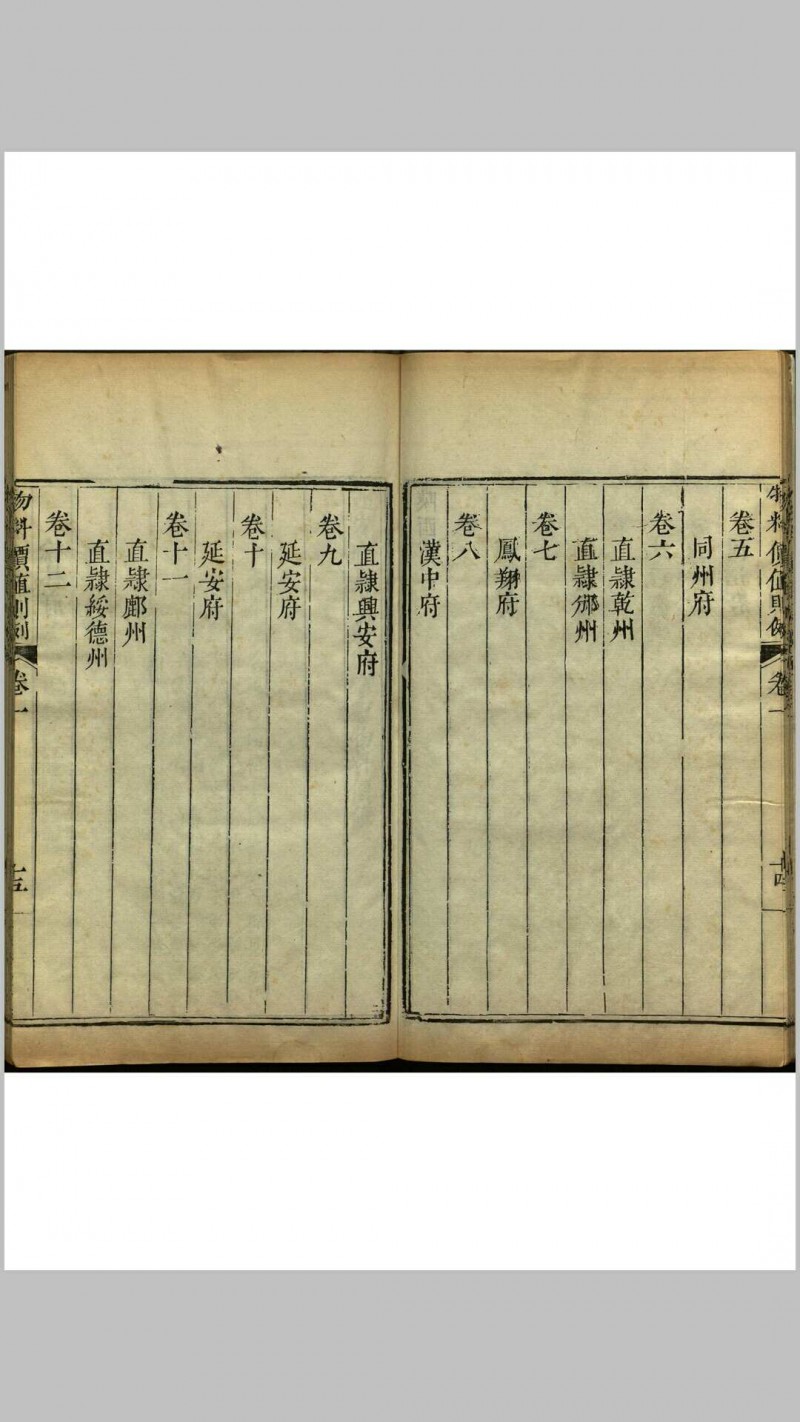 物料價值則例 卷一 十四
卷五
同州府
卷六
直隷乾州
直隷邠州
卷七
鳳翔府
卷八
漢中府
直隷興安府
卷九
延安府
卷十
延安府
卷十一
直隷鄜州
直隷綏德州
卷十二
物料價值則例 卷一 十五